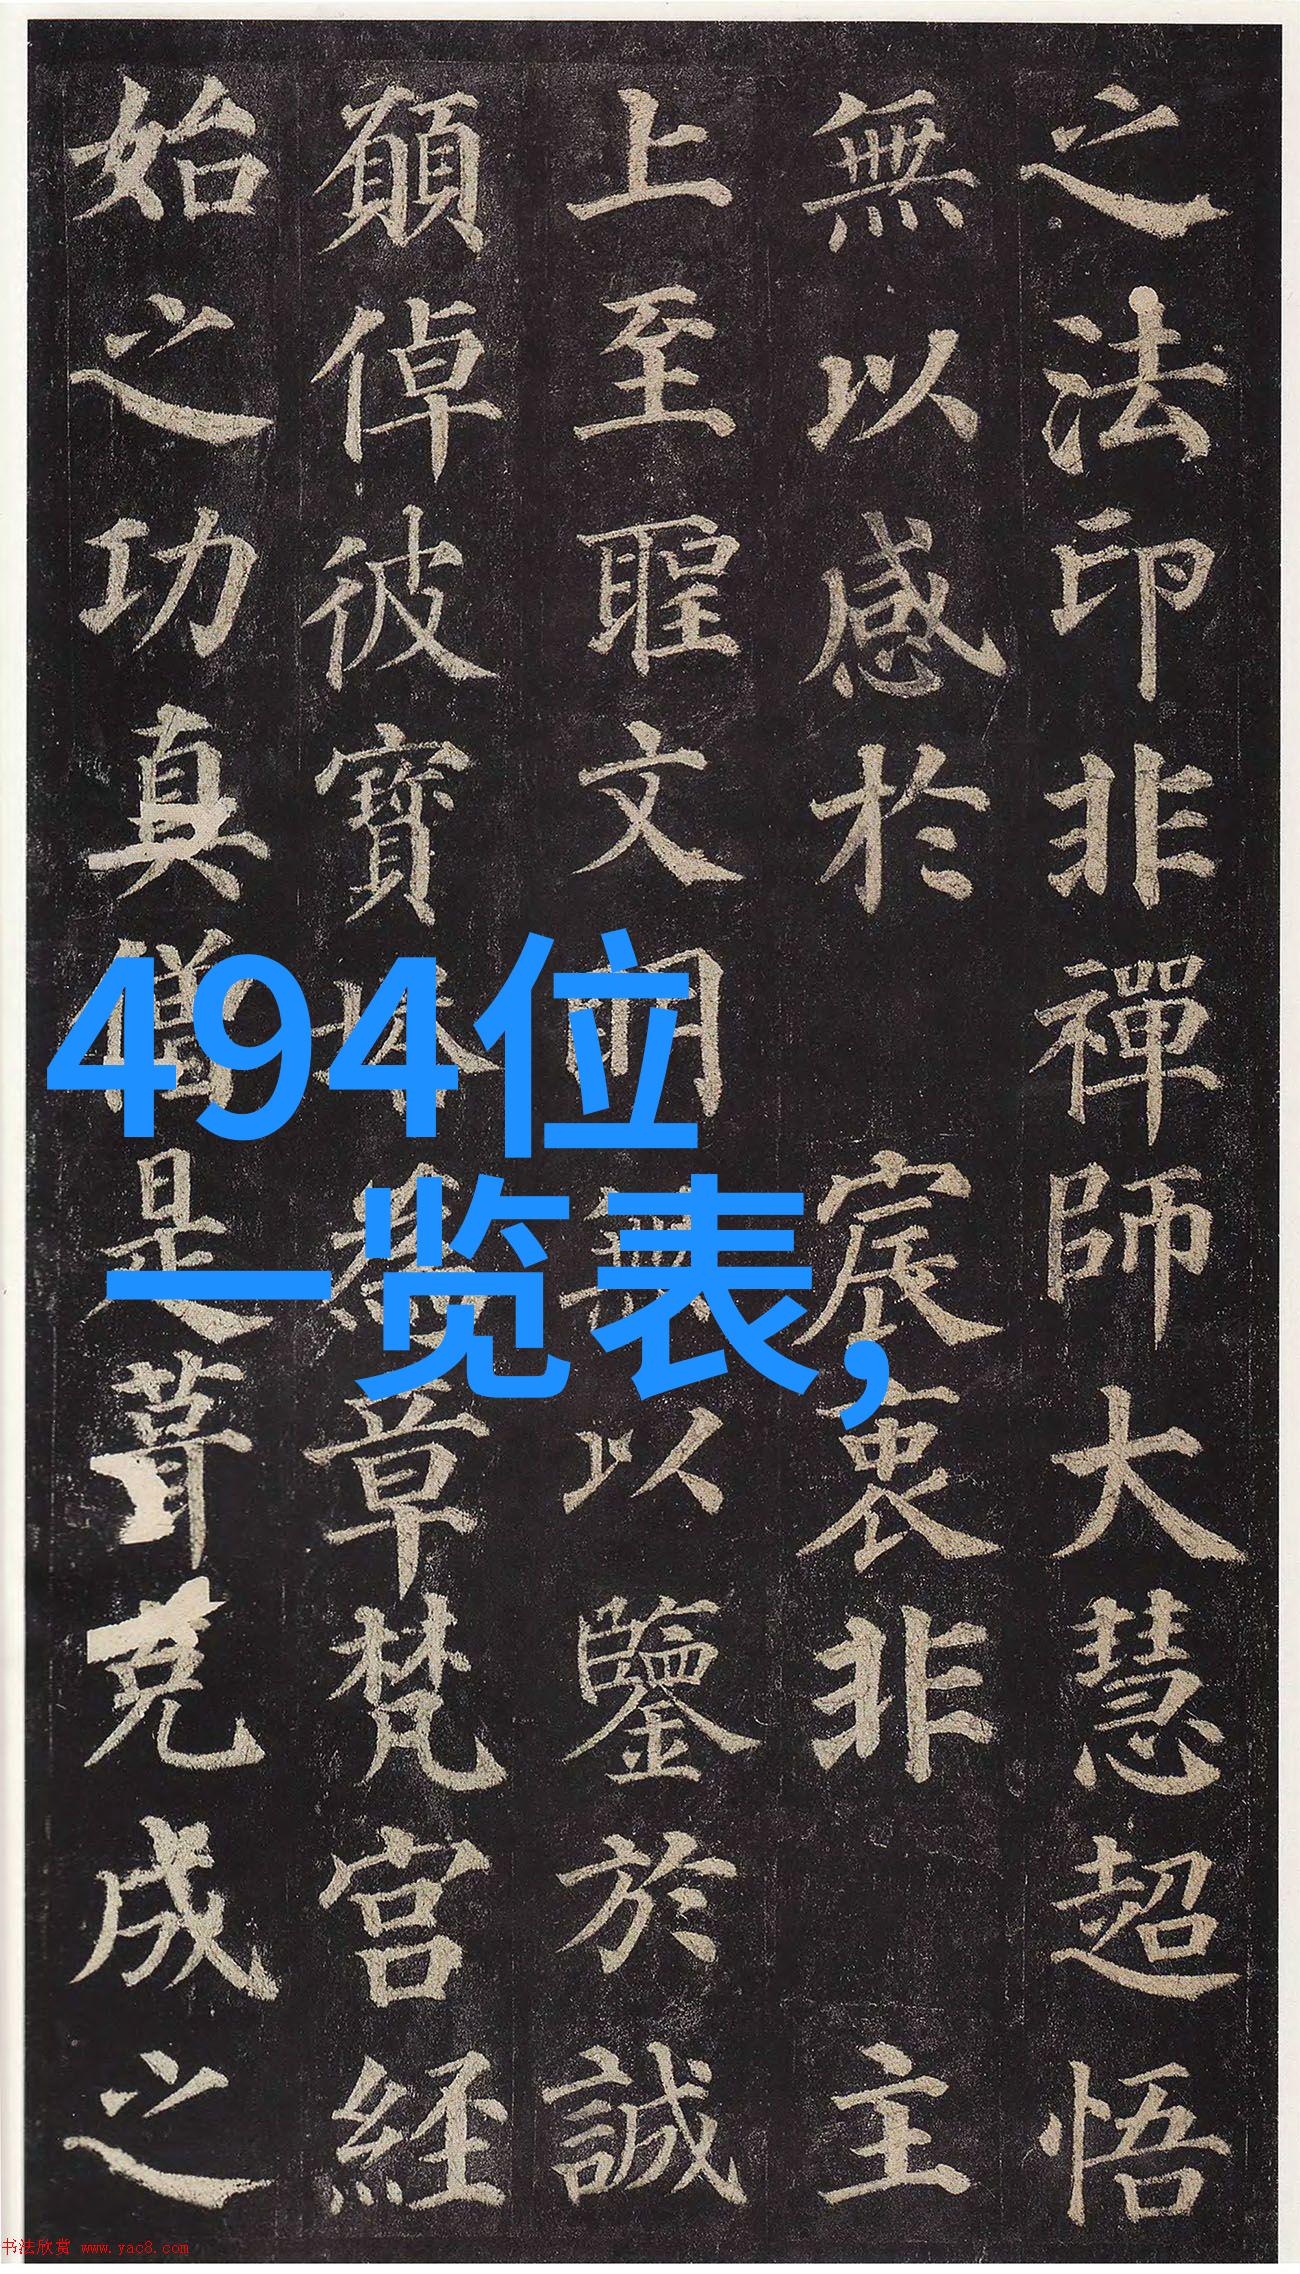 之法印非禪師大慧超悟
無以感於 宸衷非 主
上至聖文明無以鑒於誠
願倬彼寶塔為章梵宮經
始之功真僧是葺克成之
494位
一览表,
书法欣赏 www.yac8.com